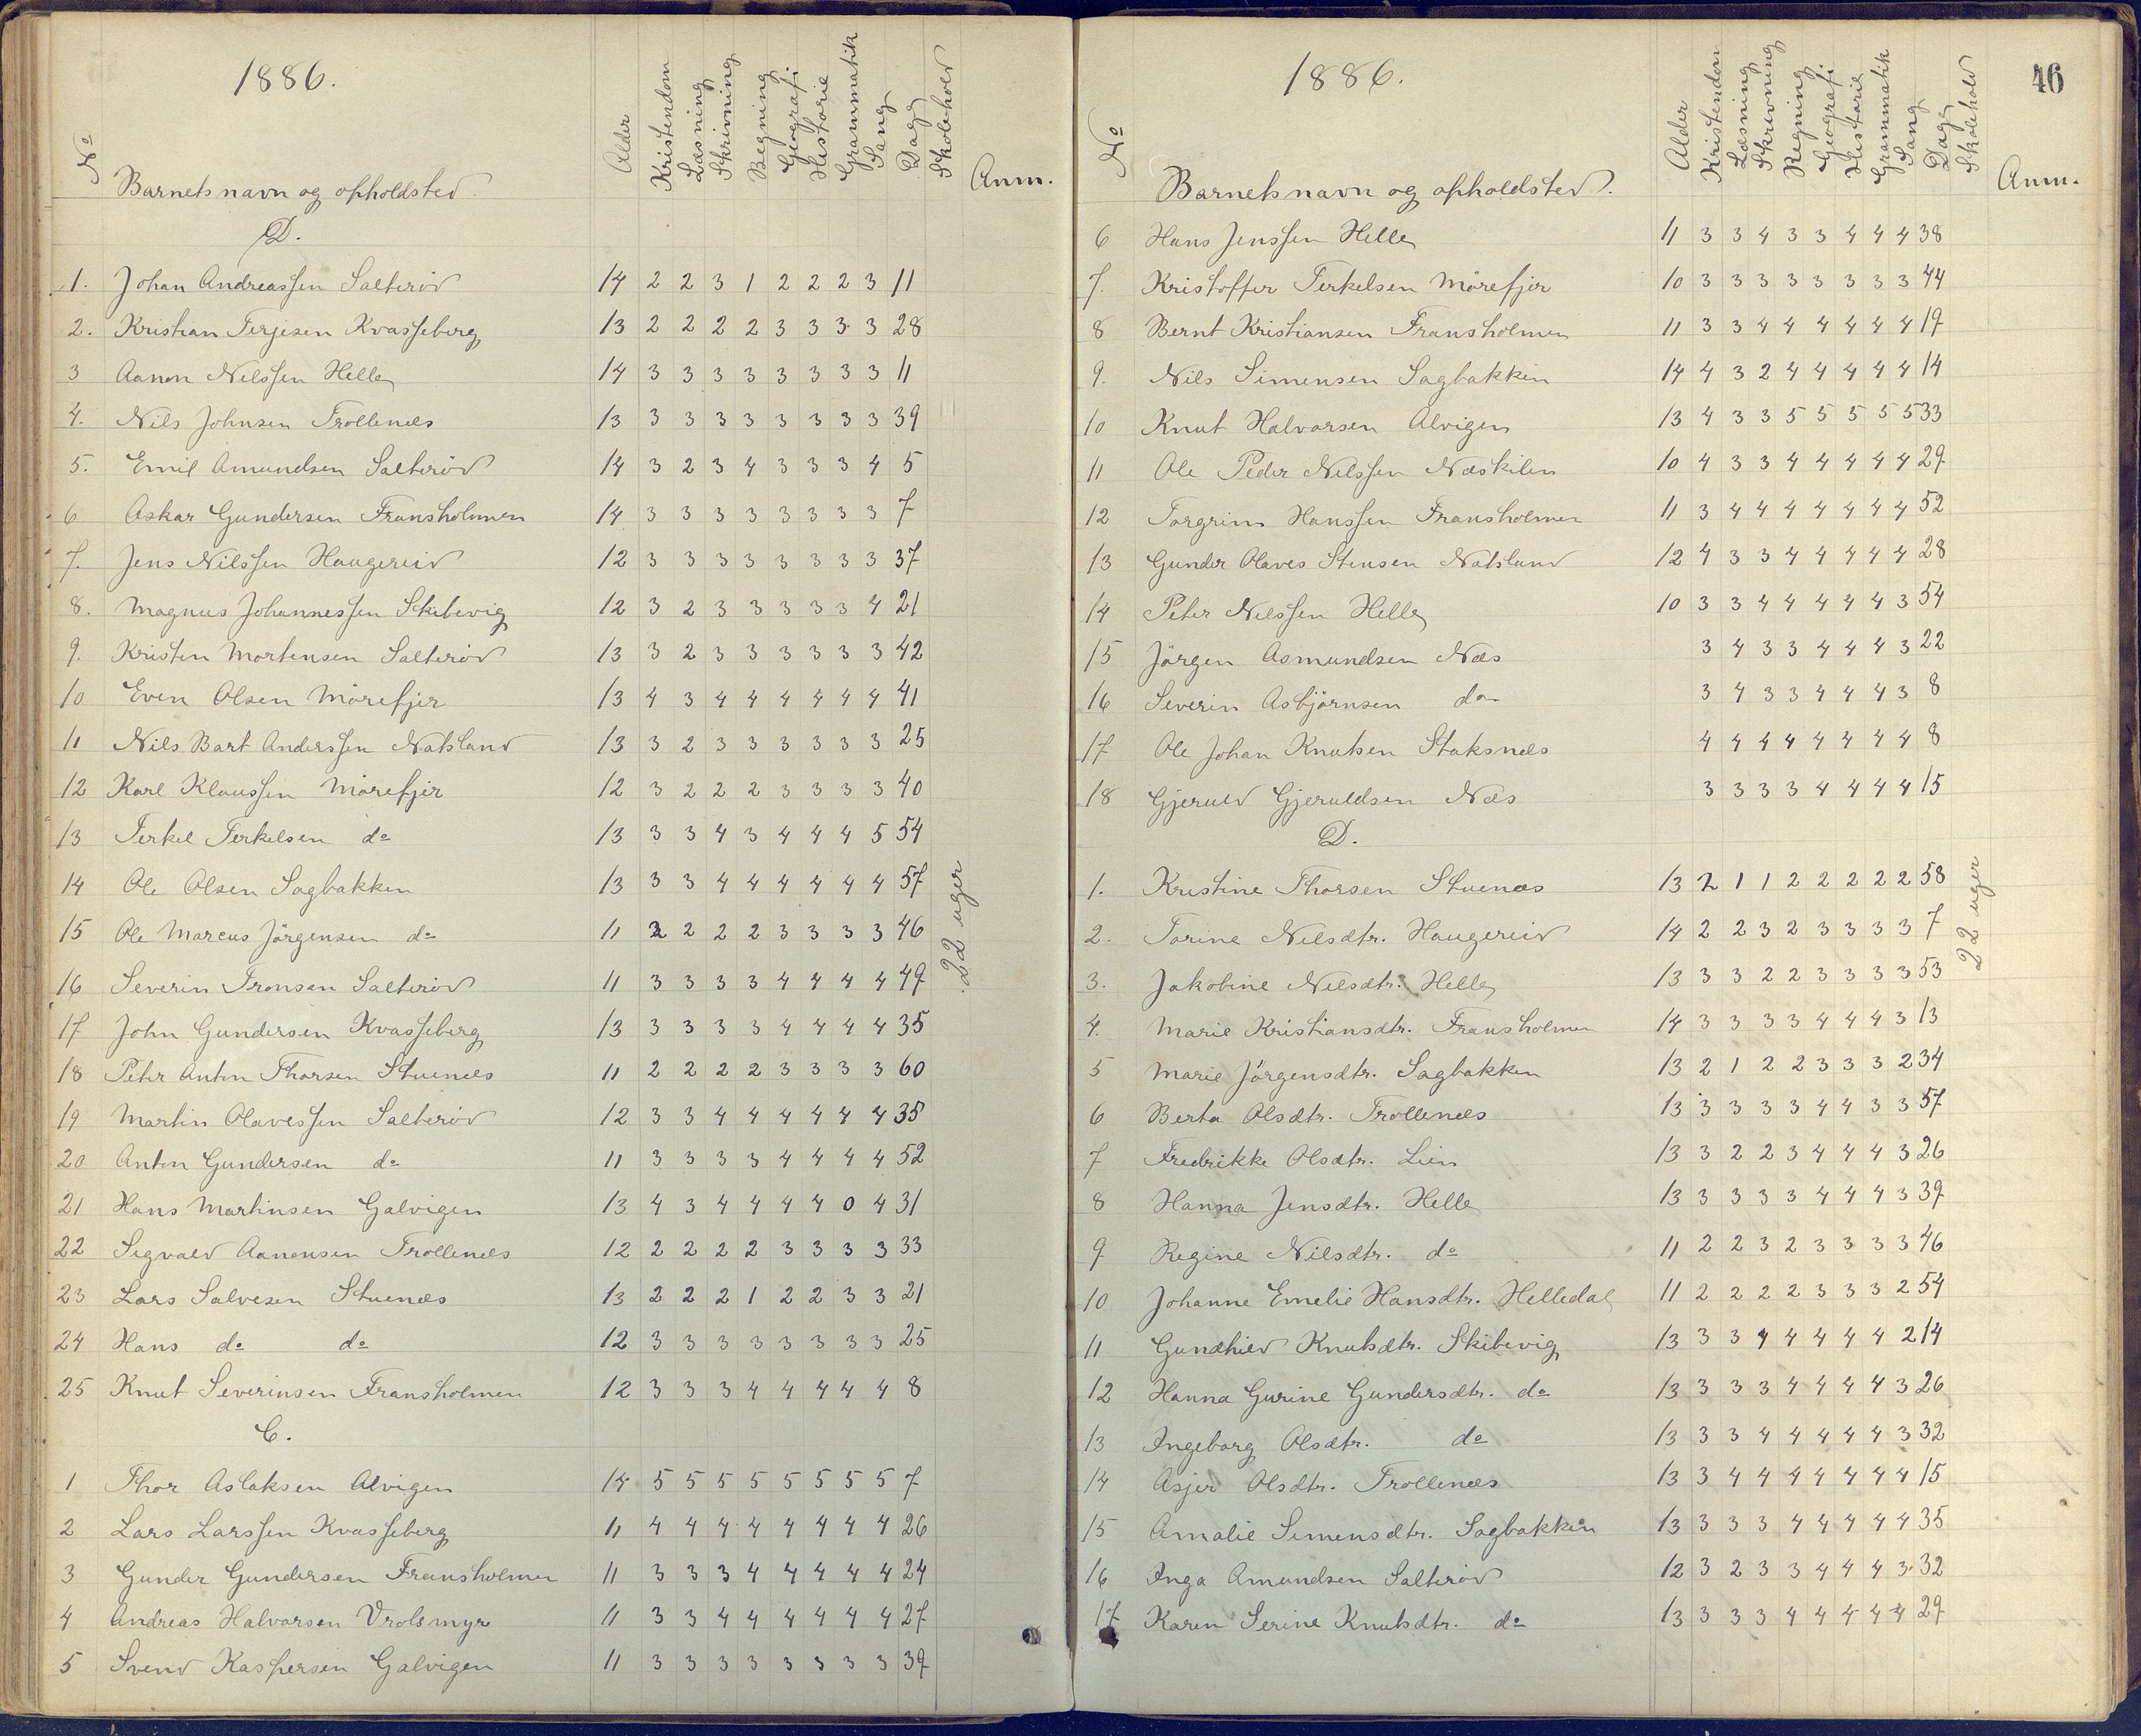 1886.
No Barnets navn og opholdsted. Alder Kristendom Læsning Skrivning Regning Geografi Historie Grammatik Sang Dage Skolehold Anm.
D.
1. Johan Andreassen Salterød 14 2 2 3 1 2 2 2 3 11
2. Kristian Terjesen Kvasseberg 13 2 2 2 2 3 3 3 3 28
3 Aanon Nelssen Helle 14 3 3 3 3 3 3 3 3 11
4. Nils Johnsen Trollenæs 13 3 3 3 3 3 3 3 3 39
5. Emil Amundsen Salterød 14 3 2 3 4 3 3 3 4 5
6 Askar Gundersen Fransholmen 14 3 3 3 3 3 3 3 3 7
7. Jens Nilssen Haugereid 12 3 3 3 3 3 3 3 3 37
8. Magnus Johannessen Skibevig 12 3 2 3 3 3 3 3 4 21
9. Kristen Mortensen Salterød 13 3 2 3 3 3 3 3 3 42
10 Even Olsen Mörefjer 13 4 3 4 4 4 4 4 4 41
11 Nils Bart Anderssen Natsland 13 3 2 3 3 3 3 3 3 25
12 Karl Klaussen Mörefjer 12 3 2 2 2 3 3 3 3 40
13 Terkel Terkelsen do 13 3 3 4 3 4 4 4 5 54
14 Ole Olsen Sagbakken 13 3 3 4 4 4 4 4 4 57
15 Ole Marcus Jörgensen do 11 2 2 2 2 3 3 3 3 46
16 Severin Tronsen Salterød 11 3 3 3 3 4 4 4 4 49
17 John Gundersen Kvasseberg 13 3 3 3 3 4 4 4 4 35
18 Peter Anton Thorsen Stuenæs 11 2 2 2 2 3 3 3 3 60
19 Martin Olavessen Salterød 12 3 3 4 4 4 4 4 4 35
20 Anton Gundersen do 11 3 3 3 3 4 4 4 4 52
21 Hans Martinsen Galvigen 13 4 3 4 4 4 4 0 4 31
22 Segvald Aanonsen Trollenæs 12 2 2 2 2 3 3 3 3 33
23 Lars Salvesen Stuenæs 13 2 2 2 1 2 2 3 3 21
24 Hans do do 12 3 3 3 3 3 3 3 3 25
25 Knut Severinsen Fransholmen 12 3 3 3 4 4 4 4 4 8
22 uger
C.
1 Thor Aslaksen Alvigen 14 5 5 5 5 5 5 5 5 7
2 Lars Larssen Kvasseberg 11 4 4 4 4 4 4 4 4 26
3 Gunder Gundersen Fransholmen 11 3 3 3 4 4 4 4 4 24
4 Andreas Halvorsen Vrolsmyr 11 3 3 4 4 4 4 4 4 27
5 Svend Kaspersen Galvigen 11 3 3 3 3 3 3 3 3 39
1886.
46
No Barnets navn og opholdsted. Alder Kristendom Læsning Skrivning Regning Geografi Historie Grammatik Sang Dage Skolehold Anm.
6 Hans Jenssen Helle 11 3 3 4 3 3 4 4 4 38
7. Kristoffer Terkelsen Mörefjer 10 3 3 3 3 3 3 3 3 44
8 Bernt Kristiansen Fransholmen 11 3 3 4 4 4 4 4 4 19
9. Nils Simensen Sagbakken 14 4 3 2 4 4 4 4 4 14
10 Knut Halvorsen Alvigen 13 4 3 3 5 5 5 5 5 33
11 Ole Peder Nilssen Næskilen 10 4 3 3 4 4 4 4 4 29
12 Torgrim Hanssen Fransholmen 11 3 4 4 4 4 4 4 4 52
13 Gunder Olaves Stensen Natsland 12 4 3 3 4 4 4 4 4 28
14 Peter Nelssen Helle 10 3 3 4 4 4 4 4 3 54
15 Jörgen Asmundsen Næs 3 4 3 3 4 4 4 3 22
16 Severin Asbjörnsen do 3 4 3 3 4 4 4 3 8
17 Ole Johan Knutsen Staksnæs 4 4 4 4 4 4 4 4 8
18 Gjeruld Gjeruldsen Næs 3 3 3 3 4 4 4 4 15
D.
1. Kristine Thorsen Stuenæs 13 2 1 1 2 2 2 2 2 58
2. Torine Nelsdtr. Haugereid 14 2 2 3 2 3 3 3 3 7
3. Jakobine Nelsdtr. Helle 13 3 3 2 2 3 3 3 3 53
4. Marie Kristiansdtr. Fransholmen 14 3 3 3 3 4 4 4 3 13
5 Marie Jörgensdtr. Sagbakken 13 2 1 2 2 3 3 3 2 34
6 Berta Olsdtr. Trollenæs 13 3 3 3 3 4 4 3 3 57
7 Fredrikke Olsdtr. Lien 13 3 2 2 3 4 4 4 3 26
8 Hanna Jensdtr. Helle 13 3 3 3 3 4 4 4 3 39
9 Regine Nilsdtr. do 11 2 2 3 2 3 3 3 3 46
10 Johanne Emelie Hansdtr. Helledal 11 2 2 2 2 3 3 3 2 54
11 Gundhild Knutsdtr. Skibevig 13 3 3 4 4 4 4 4 2 14
12 Hanna Gurine Gundersdtr. do 13 3 3 3 4 4 4 4 3 26
13 Ingeborg Olsdtr. do 13 3 3 4 4 4 4 4 3 32
14 Asjer Olsdtr. Trollenæs 13 3 4 4 4 4 4 4 4 15
15 Amalie Semensdtr. Sagbakken 13 3 3 3 4 4 4 4 4 35
16 Inga Amundsen Salterød 12 3 2 3 3 4 4 4 3 32
17 Karen Serine Knutsdtr. do 13 3 3 3 4 4 4 4 4 29
22 uger